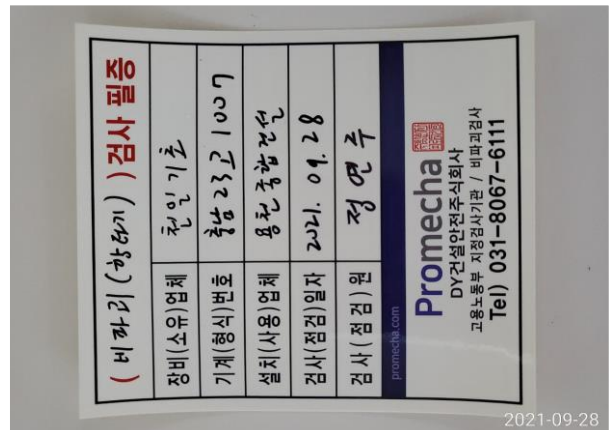 ( 비파괴(항타기) ) 검사 필증
장비(소유)업체 천일기초
기계(형식)번호 충남 23고 1007
설치(사용)업체 용천종합건설
검사(점검)일자 2021. 09. 28
검사(점검)원 정연주
promecha.com
Promecha
DY건설안전주식회사
고용노동부 지정검사기관 / 비파괴검사
Tel) 031-8067-6111
2021-09-28